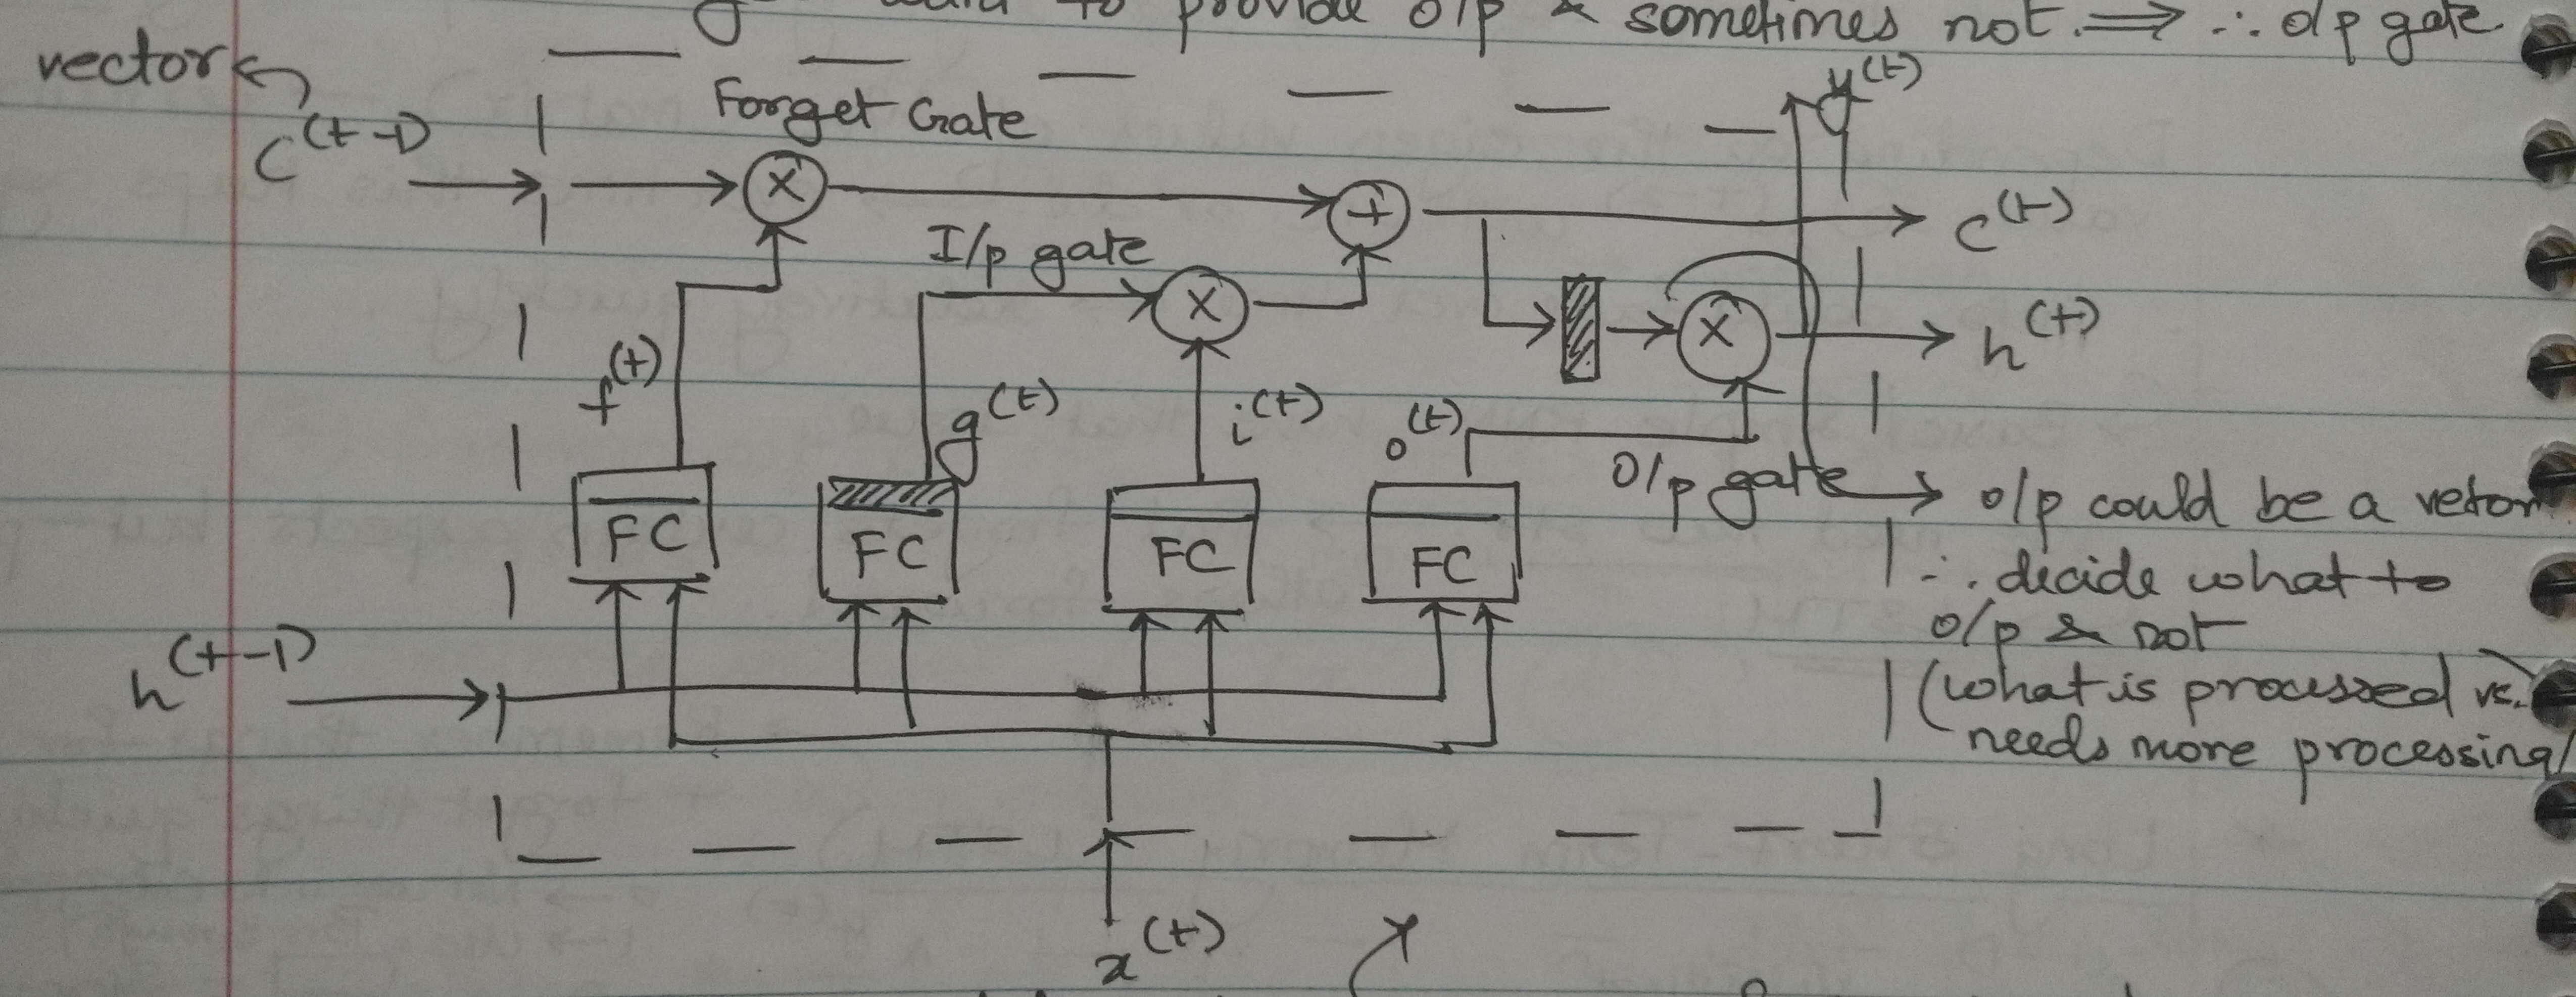 to provide o/p & sometimes not. ⟹ ∴ o/p gate
vector
y^(t)
Forget Gate
C^(t-1)
×
+
C^(t)
I/p gate
×
×
h^(t)
f^(t)
g^(t)
i^(t)
o^(t)
O/p gate → o/p could be a vetor
FC
FC
FC
FC
∴ decide what to
o/p & not
h^(t-1)
(what is processed vs.
needs more processing)
x^(t)